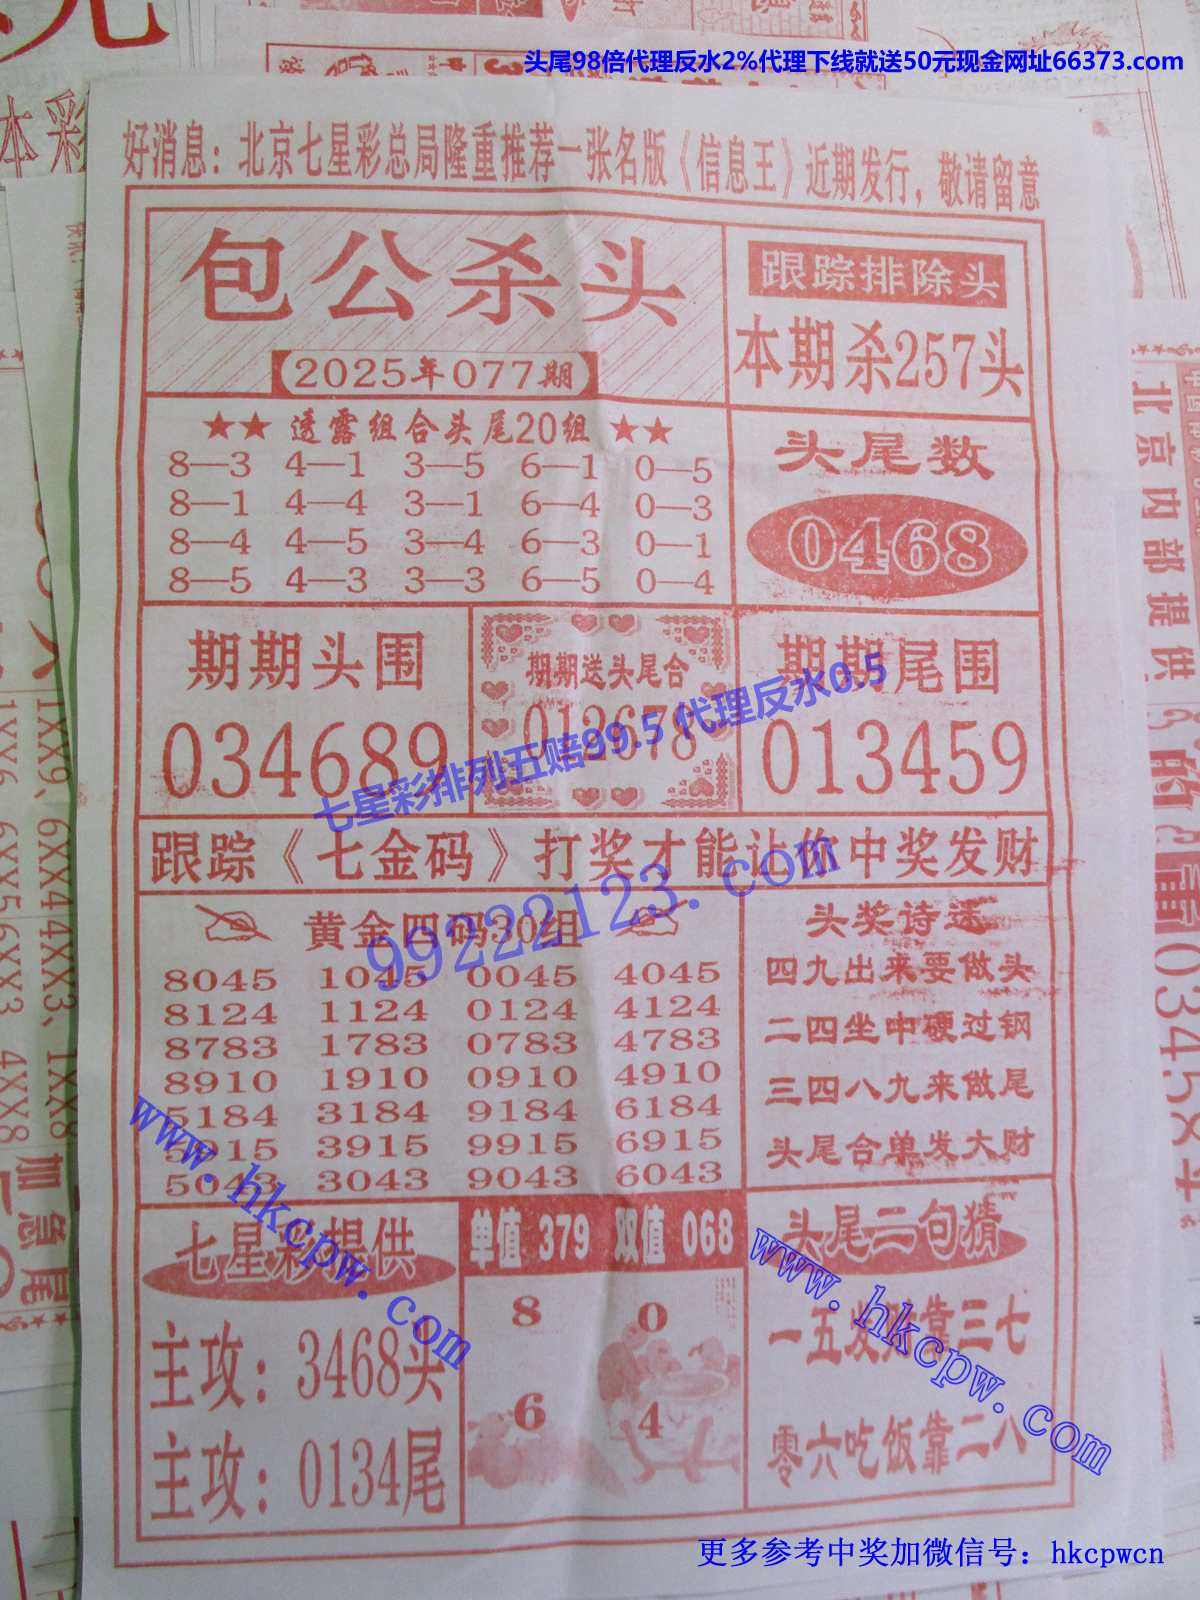 头尾98倍代理反水2%代理下线就送50元现金网址66373.com
好消息：北京七星彩总局隆重推荐一张名版《信息王》近期发行，敬请留意
包公杀头
2025年077期
跟踪排除头
本期杀257头
★★ 透露组合头尾20组 ★★
8—3 4—1 3—5 6—1 0—5
8—1 4—4 3—1 6—4 0—3
8—4 4—5 3—4 6—3 0—1
8—5 4—3 3—3 6—5 0—4
头尾数
0468
期期头围
034689
期期送头尾合
012678
期期尾围
013459
七星彩排列五赔99.5 代理反水0.5
跟踪《七金码》打奖才能让你中奖发财
99222123.com
黄金四码30组
8045 1045 0045 4045
8124 1124 0124 4124
8783 1783 0783 4783
8910 1910 0910 4910
5184 3184 9184 6184
5915 3915 9915 6915
5043 3043 9043 6043
头奖诗送
四九出来要做头
二四坐中硬过钢
三四八九来做尾
头尾合单发大财
www.hkcpw.com
七星彩提供
主攻：3468头
主攻：0134尾
单值 379 双值 068
8 0
6 4
头尾二句猜
一五发财靠三七
零六吃饭靠二八
www.hkcpw.com
更多参考中奖加微信号：hkcpwcn
本彩
北京内部提供
加急尾